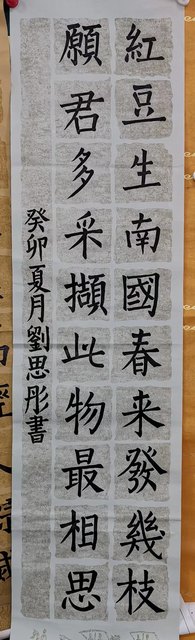 紅豆生南國春来發幾枝
願君多采擷此物最相思
癸卯夏月劉思彤書